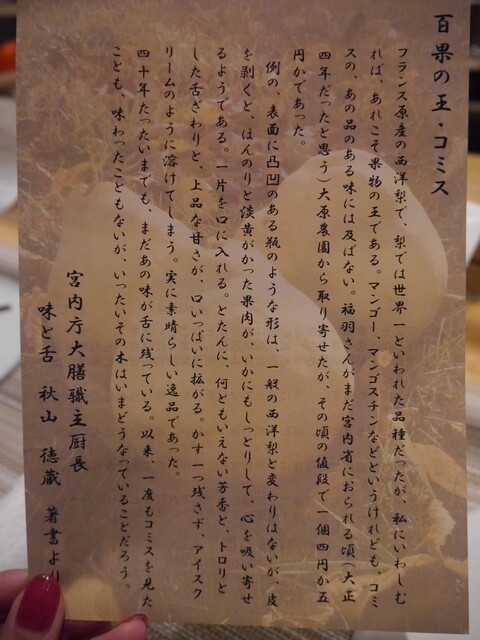 百果の王・コミス
フランス原産の西洋梨で、梨では世界一といわれた品種だったが、私にいわしむ
れば、あれこそ果物の王である。マンゴー、マンゴスチンなどというけれども、コミ
スの、あの品のある味には及ばない。福羽さんがまだ宮内省におられる頃(大正
四年だったと思う)大原農園から取り寄せたが、その頃の値段で一個四円か五
円かであった。
例の、表面に凸凹のある瓶のような形は、一般の西洋梨と変わりはないが、皮
を剥くと、ほんのりと淡黄がかった果肉が、いかにもしっとりして、心を吸い寄せ
るようである。一片を口に入れる。とたんに、何ともいえない芳香と、トロリと
した舌ざわりと、上品な甘さが、口いっぱいに拡がる。かす一つ残さず、アイスク
リームのように溶けてしまう。実に素晴らしい逸品であった。
四十年たったいまでも、まだあの味が舌に残っている。以来、一度もコミスを見た
ことも、味わったこともないが、いったいその木はいまどうなっていることだろう。
宮内庁大膳職主厨長
味と舌 秋山 徳蔵 著書より